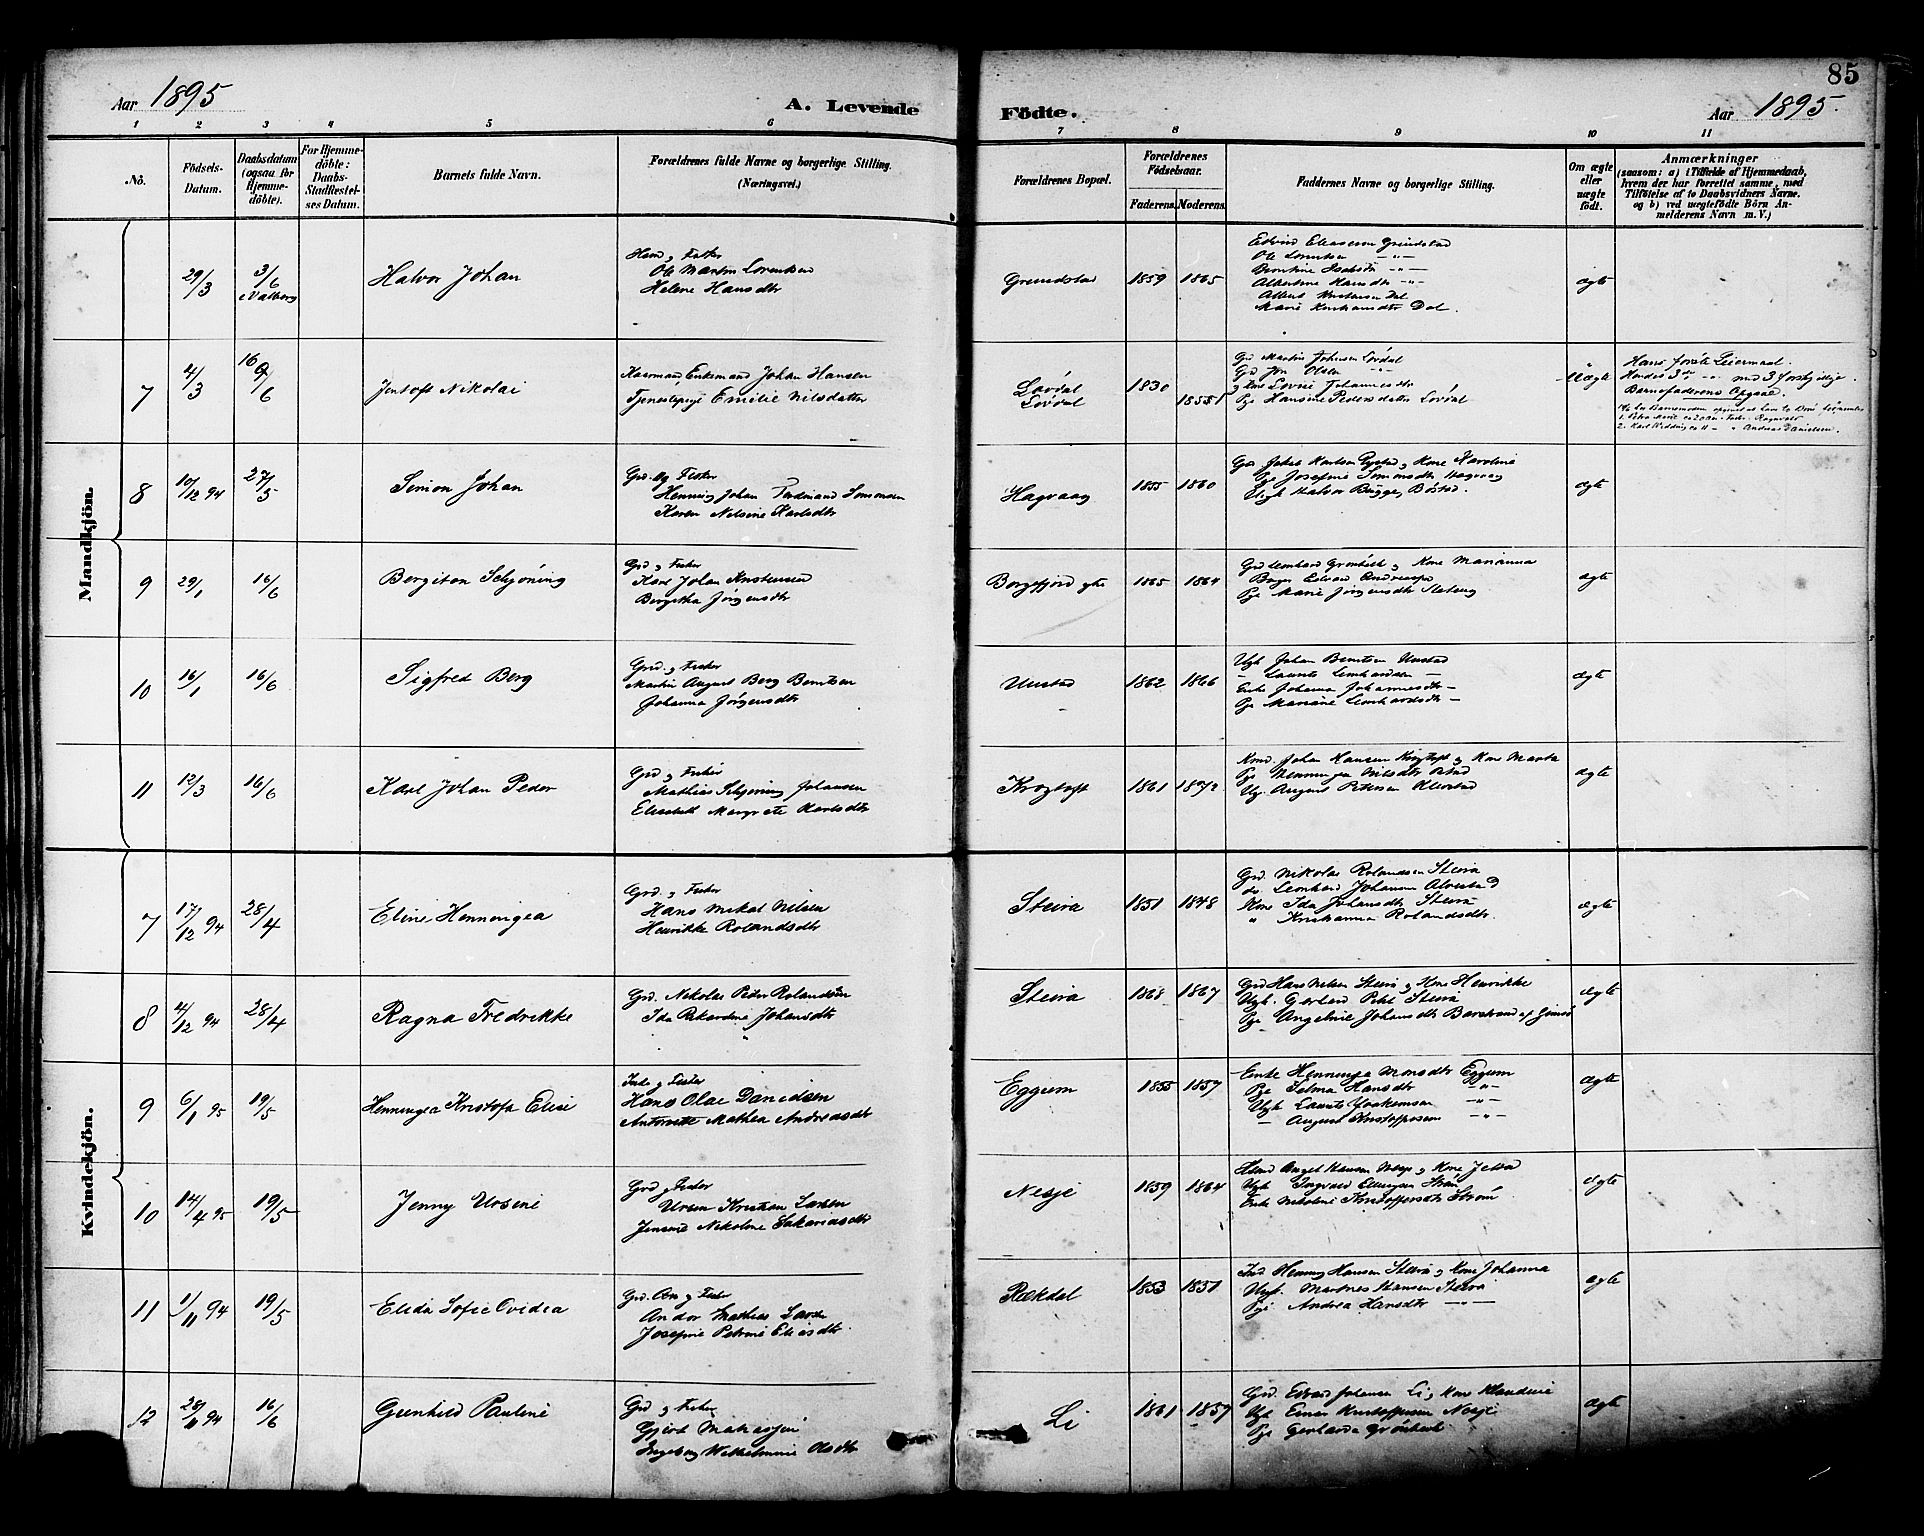 85
Aar 1895
A. Levende
Födte.
Aar 1895.
1 2 3 4 5 6 7 8 9 10 11
No.
Födsels-
Datum.
Daabsdatum
(ogsaa for
Hjemme-
döbte).
For Hjemme-
döbte:
Daabs-
Stadfæstel-
ses Datum.
Barnets fulde Navn.
Forældrenes fulde Navne og borgerlige Stilling.
(Næringsvei.)
Forældrenes Bopæl.
Forældrenes
Födselsaar.
Faderens. Moderens.
Faddernes Navne og borgerlige Stilling.
Om ægte
eller
uægte
födt.
Anmærkninger
(saasom: a) i Tilfælde af Hjemmedaab,
hvem der har forrettet samme, med
Tilföielse af to Daabsvidners Navne.
og b) ved uægtefödte Börn An-
melderens Navn m.V.)
Mandkjön.
29/3 3/6
Halvor Johan
Ole Martin Lorentsen
Helene Hansdtr
Grundstad 1859 1865
Edvind Eliassen Grundstad
Ole Lorentsen -"-
Albertine Hansdtr -"-
Marie Kristiansdtr Dal.
ægte
7 4/3 16/6
Jentoft Nikolai
Enkemand Johan Hansen
Tjenestepige Emilie Nilsdatter
Lovdal
Lovdal
1830
1855
Martin Johnsen Lovdal
Pge Hansine Pedersdatter Lovdal
Uægte
Hans förste Leiermaal.
Hendes 3de -"- med 3 forskjellige.
Barnefaderens Opgave.
8 10/12 94 27/5
Simon Johan
Henning Johan Ferdinand Simonsen
Karen Nelsine Karlsdtr
Hagvaag 1855 1860
Kone Karoline
Pge Josefine Simonsdtr Hagvaag
Halvor Bugge, Böstad.
ægte
9 29/1 16/6
Bergiton Schjöning
Grd. og Fisker
Karl Johan Kristensen
Bergitha Jörgensdtr
Borgefjord 1865 1864
Grd Leonhard Grönbech og Kone Marianna
Edvard Andreassen
Pge Marie Jörgensdtr
ægte
10 16/1 16/6
Sigfred Berg
Grd. og Fisker
Martin August Berg Berntsen
Johanna Jörgensdtr
Unstad 1862 1866
Ugk Johan Berntsen Unstad
- Laurits Leonhardsen -
Enke Johanna Johannesdtr -
Pge Mariane Leonhardsdtr -
ægte
11 12/3 16/6
Karl Johan Peder
Grd og Fisker
Mathias Schjöning Johansen
Elisabeth Margrete Karlsdtr
Krogtoft 1861 1872
Johan Hansen Krogtoft og Kone Marta
Pge Henningea Nilsdtr
Ug. August Petersen
ægte
Kvindekjön.
7 17/12 94 28/4
Eline Henningea
Grd. og Fisker
Hans Mikal Nilsen
Henrikke Rolandsdtr
Steira 1851 1848
Grd Nikolas Rolandsen Steira
do Leonhard Johansen Alvestad
Kone Ida Johansdtr Steira
" Kristianna Rolandsdtr.
ægte
8 4/12 94 28/4
Ragna Fredrikke
Grd. Nikolas Peder Rolandsen
Ida Rikardine Johansdtr
Steira 1868 1867
Grd Hans Nilsen Steira og Kone Henrikke
Ugk. Gerhard Steira
Pge Angeline Johansdtr Barstrand af Gimsö
ægte
9 6/1 95 19/5
Henningea Kristofa Elise
Inds og Fisker
Hans Olai Danielsen
Antonette Mathea Andreasdtr
Eggum 1855 1857
Enke Henningea Monsdtr Eggum
Pge Selma Hansdtr -"-
Ugk Laurits Joakimsen -"-
- August Kristoffersen -"-
ægte
10 14/4 95 19/5
Jenny Ursine
Grd og Fisker
Ursin Kristian Larsen
Jensine Nikoline Sakariasdtr
Nesje 1859 1864
Ugk Ingvald Ellingsen Ström
Enke Nikoline Kristoffersdtr Ström
ægte
11 1/11 94 19/5
Elida Sofie Ovidia
Grd. og Fisker
Andor Mathias Larsen
Josefine Petrine Eliasdtr.
Rækdal 1853 1851
Inds Henning Hansen Steira og Kone Johanna
Ugk. Martines Hansen Steira
Pge Andrea Hansdtr -"-
ægte
12 29/11 94 16/6
Gunhild Pauline
Grd og Fisker
Gjert Mathiassen
Ingeborg Wilhelmine Olsdtr
Li 1861 1857
Grd. Edvard Johansen Li, Kone Klaudine
Ugk Einar Kristoffersen Nesje
Pge Gerharda Grönbech
ægte